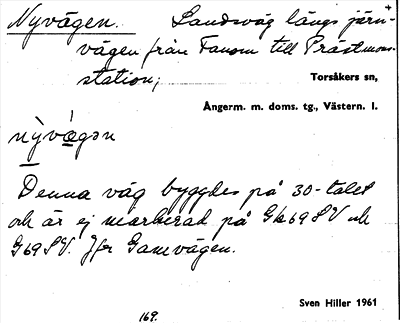 Nyvägen. Landsväg längs järn-
vägen från Fanom till Prästmons
station;
Torsåkers sn,
Ångerm. m. doms. tg., Västern. l.
nỳvægən
Denna väg byggdes på 30-talet
och är ej markerad på Gk69SV och
G69SV. Jfr Gamvägen.
Sven Hiller 1961
169.